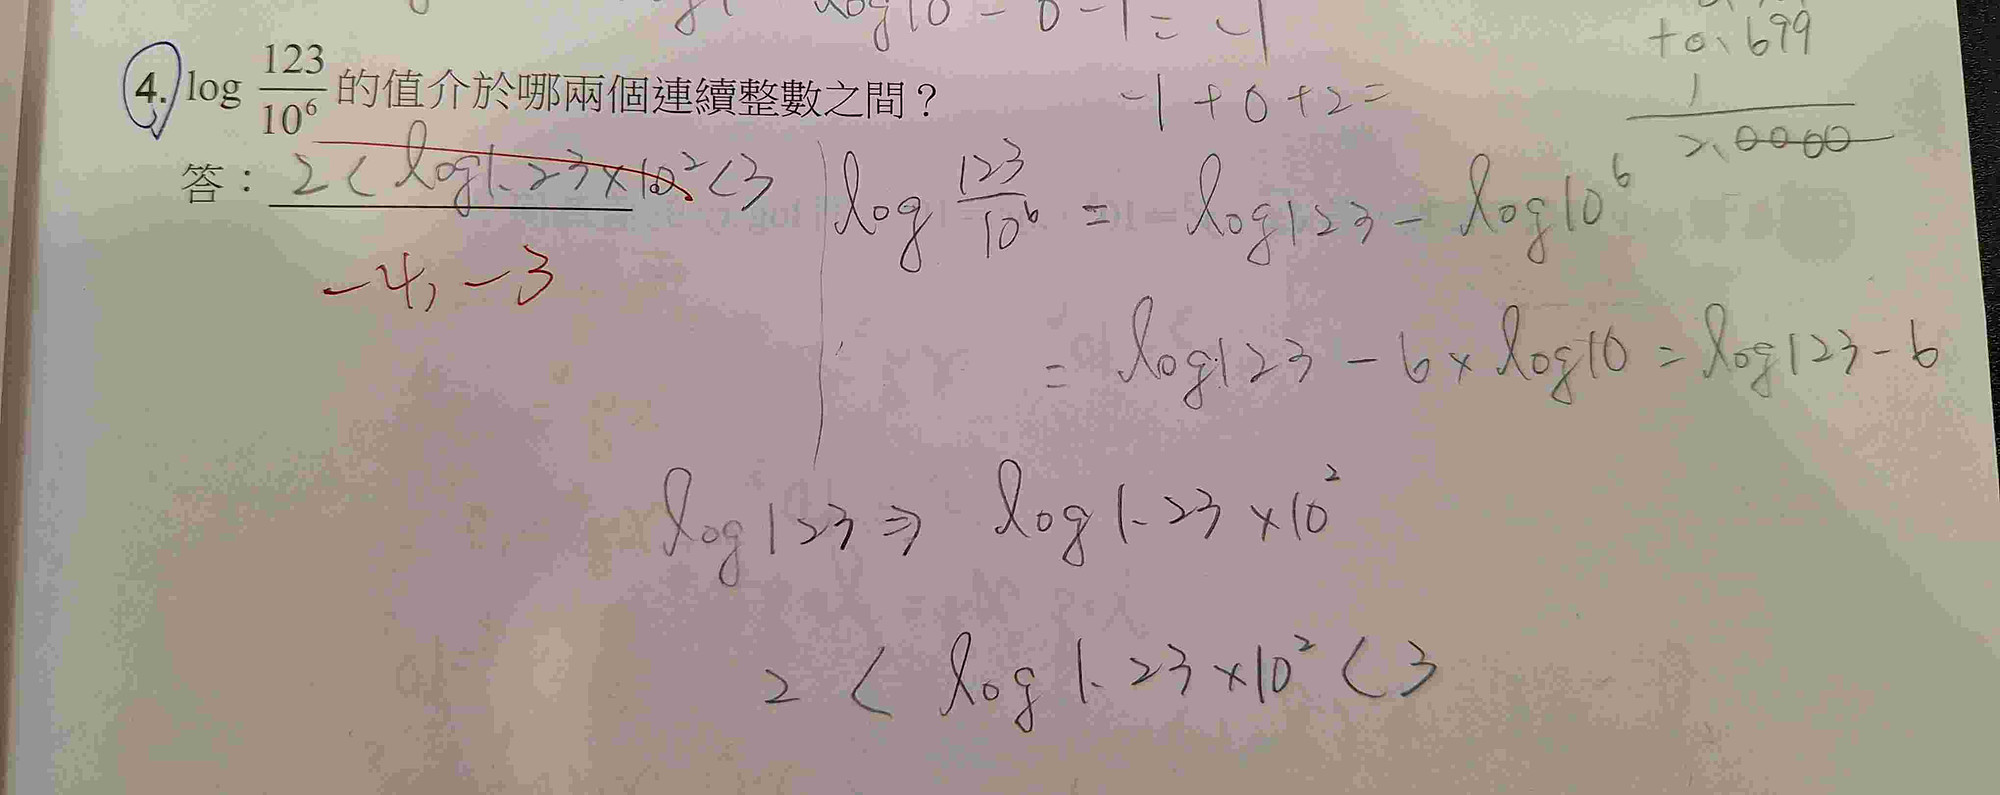 log10 - 0 - 1 = -1
+0.699
1
2.0000
-1 + 0 + 2 =
4. log 123/10⁶ 的值介於哪兩個連續整數之間？
答： 2 < log1.23×10² < 3
-4, -3
log 123/10⁶ = log123 - log10⁶
= log123 - 6 × log10 = log123 - 6
log123 ⇒ log1.23×10²
2 < log1.23×10² < 3